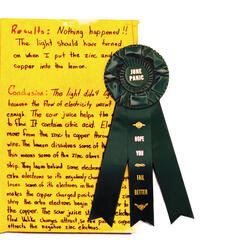 Results: Nothing happened!!
The light should have turned
on when I put the zinc and
copper into the lemon.
Conclusion: The light didn't
because the flow of electricity
enough. The sour juice helps the
to flow. It contains citric acid.
move from the zinc to copper through
wire. The lemon dissolves some of the
This means some of the zinc atoms
ship. They leave behind some
extra electrons so its negatively
loses some of its electrons in the
makes the copper charged
why the extra electrons begin
the copper. The sour juice
flow. Unlike charges attract, so the
attracts the negative zinc electrons.
JUNE
PANIC
HOPE
YOU
FAIL
BETTER